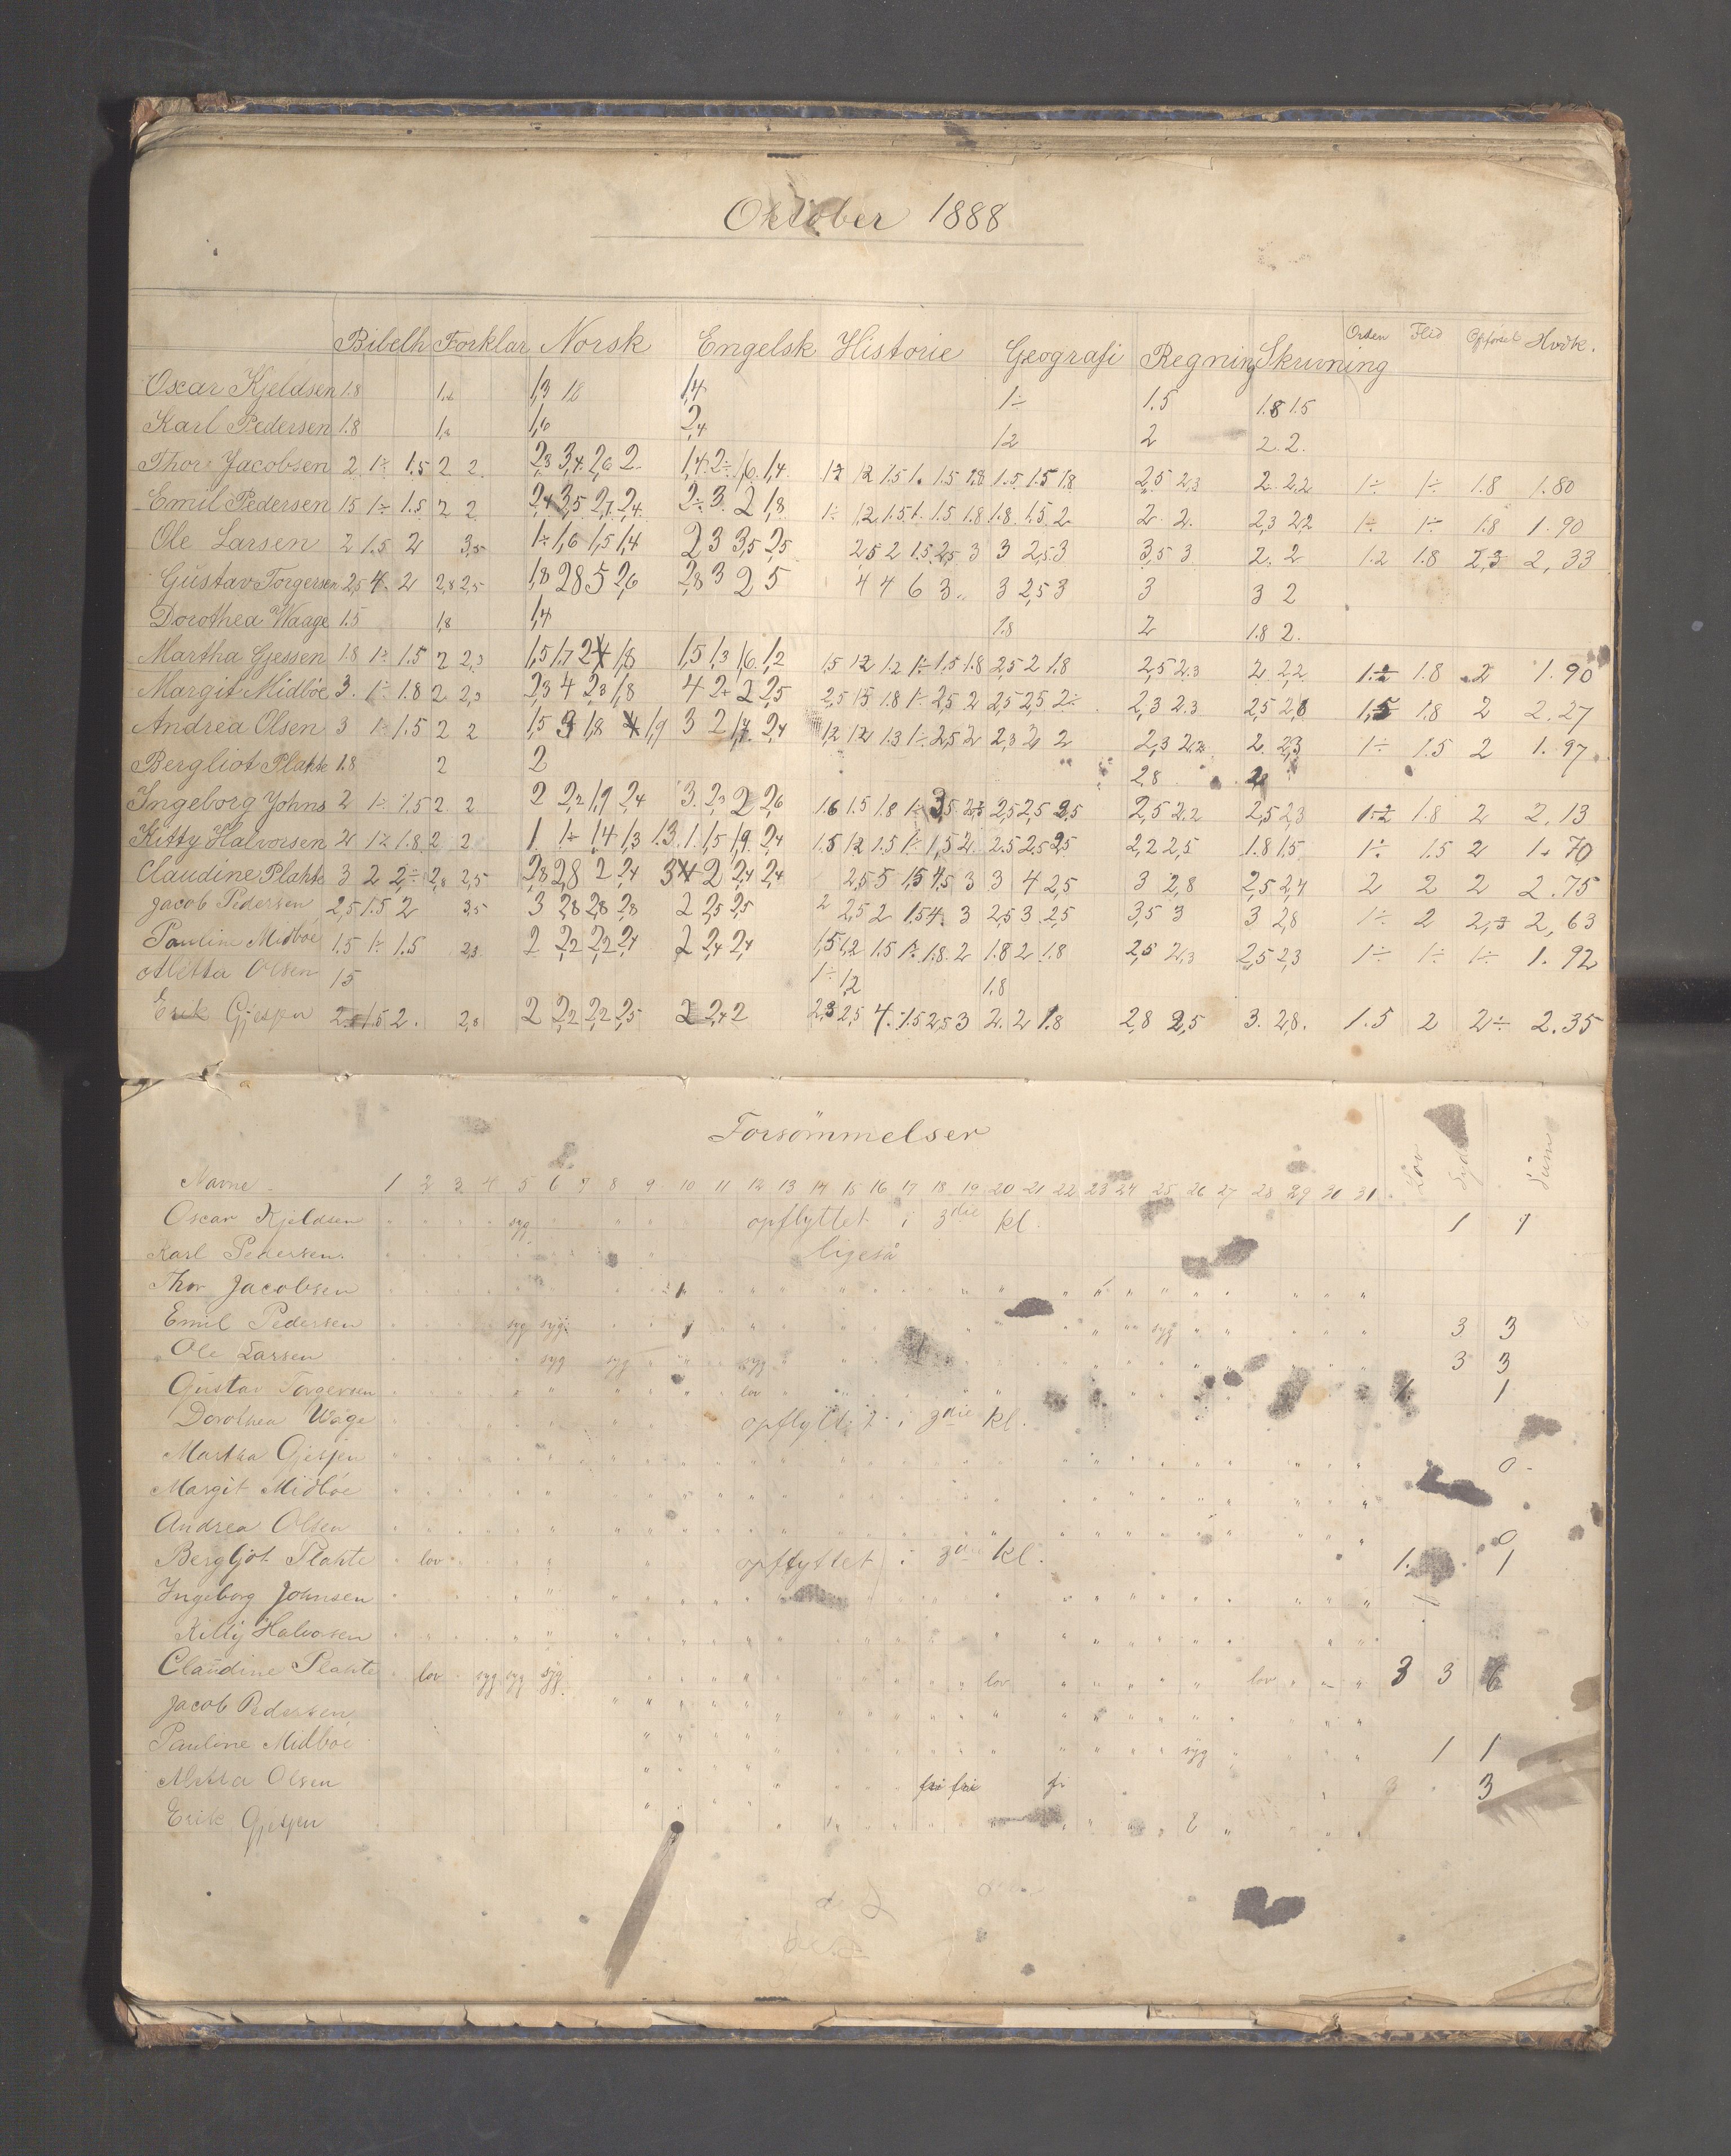 Oktober 1888
Bibelh Forklar Norsk Engelsk Historie Geografi Regning Skrivning Orden Flid Opførsel Hvdk.
Oscar Kjeldsen 1.8 1,3 18 1,4 1÷ 1.5 1.8 1.5
Karl Pedersen 1.8 1,6 2,4 12 2 2. 2.
Thor Jacobsen 2 1÷ 1.5 2 2 2,3 3,4 2,6 2 1,4 2÷ 1,6 1,4 1.5 1. 1.5 1.8 1.5 1.5 1.8 2,5 2.3 2. 2,2 1÷ 1÷ 1.8 1.80
Emil Pedersen 15 1÷ 1.5 2 2 2,4 3,5 2,7 2,4 2÷ 3. 2 1,8 1÷ 1,2 1.5 1. 1.5 1.8 1.8 1.5 2 2 2. 2,3 2,2 1÷ 1÷ 1.8 1.90
Ole Larsen 2 1.5 2 3,5 1÷ 1,6 1,5 1,4 2 3 3,5 2,5 2,5 2 1.5 2,5 3 3 2,5 3 3,5 3 2. 2 1.2 1.8 2,3 2,33
Gustav Torgersen 2,5 4 2 2,8 2,5 1,8 28 5 2,6 2,8 3 2 5 4 4 6 3 3 2,5 3 3 3 2
Dorothea Waage 1.5 1,8 1,4 1.8 2 1.8 2.
Martha Gjessen 1.8 1÷ 1.5 2 2,3 1,5 1,7 2 1,8 1,5 1,3 1,6 1,2 1,5 12 1.2 1÷ 1.5 1.8 2,5 2 1.8 2,5 2.3 2 2,2 1.8 2 1.90
Margit Midböe 3. 1÷ 1.8 2 2,3 2,3 4 2,3 1,8 4 2+ 2 2,5 2,5 15 1.8 1÷ 2,5 2 2,5 2,5 2÷ 2,3 2.3 2,5 2,8 1,5 1.8 2 2.27
Andrea Olsen 3 1÷ 1.5 2 2 1,5 3 1,8 1,9 3 2 2,4 1,2 12 1.3 1÷ 2,5 2 2,3 2 2 2,3 2.3 2. 2,3 1÷ 1.5 2 1.97
Bergliot Plahte 1.8 2 2 2,8 2
Ingeborg Johns 2 1÷ 1.5 2. 2 2 2,2 1,9 2,4 3. 2,3 2 2,6 1.6 1.5 1.8 1÷ 2,5 2,5 2,5 2,5 2.2 2,5 2,3 1.8 2 2.13
Kitty Halvorsen 2 1÷ 1.8 2 2 1 1÷ 1,4 1,3 1.3 1. 1,5 1,9 2,4 1.5 12 1.5 1÷ 1,5 2. 2.5 2.5 2,5 2,2 2,5 1.8 1.5 1÷ 1.5 2 1.70
Claudine Plahte 3 2 2÷ 2,8 2,5 2,8 2,8 2 2,4 3 2 2,4 2,4 2,5 5 1,5 4,5 3 3 4 2,5 3 2,8 2,5 2,4 2 2 2 2.75
Jacob Pedersen 2,5 1.5 2 3,5 3 2,8 2,8 2,8 2 2,5 2,5 2 2,5 2 1.5 4. 3 2,5 3 2,5 3,5 3 3 2,8 1÷ 2 2,63
Paulin Midböe 1.5 1÷ 1.5 2,3 2 2,2 2,2 2,4 2 2,4 2,4 1,5 1,2 1.5 1÷ 1.8 2 1.8 2 1.8 2,5 2,3 2,5 2,3 1÷ 1÷ 1÷ 1.92
Aletta Olsen 15 1÷ 1,2 1.8
Erik Gjespen 1.5 2. 2,8 2 2,2 2,2 2,5 2 2,4 2 2,3 2,5 4. 1.5 2,5 3 2. 2 1.8 2,8 2,5 3. 2,8. 1.5 2 2÷ 2.35
Forsömmelser
Navne 1 2 3 4 5 6 7 8 9 10 11 12 13 14 15 16 17 18 19 20 21 22 23 24 25 26 27 28 29 30 31. Lov Syg Sum
Oscar Kjeldsen syg opflyttet i 3die kl. 1 1
Karl Pedersen. ligeså
Thor Jacobsen
Emil Pedersen syg syg syg 3 3
Ole Larsen syg syg syg 3 3
Gustav Torgersen lov 1 1
Dorothea Wåge opflyttet i 3die kl.
Martha Gjespen 0
Margit Midböe
Andrea Olsen 0
Bergljot Plahte lov opflyttet i 3die kl. 1. 1
Ingeborg Johnsen
Kitty Halvorsen
Claudine Plahte lov syg syg syg lov lov 3 3 6
Jacob Pedersen
Pauline Midböe syg 1 1
Aletta Olsen fri fri fr 3 3
Erik Gjespen